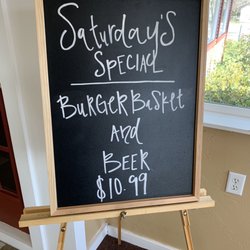 Saturday's
Special
Burger Basket
and
Beer
$10.99